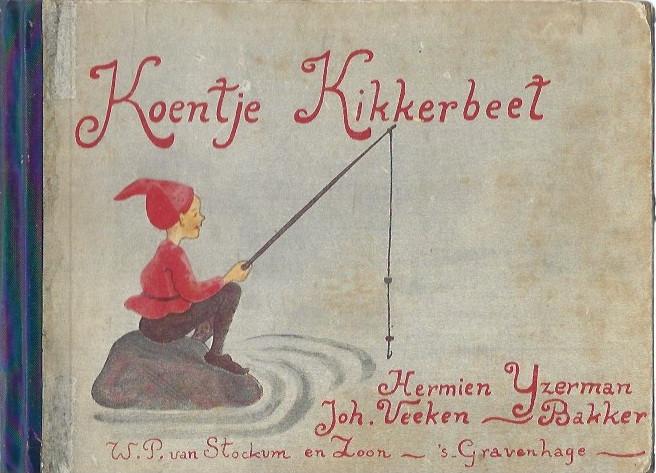 Koentje Kikkerbeet
Hermien Yzerman
Joh. Veeken — Bakker
W. P. van Stockum en Zoon — 's-Gravenhage —